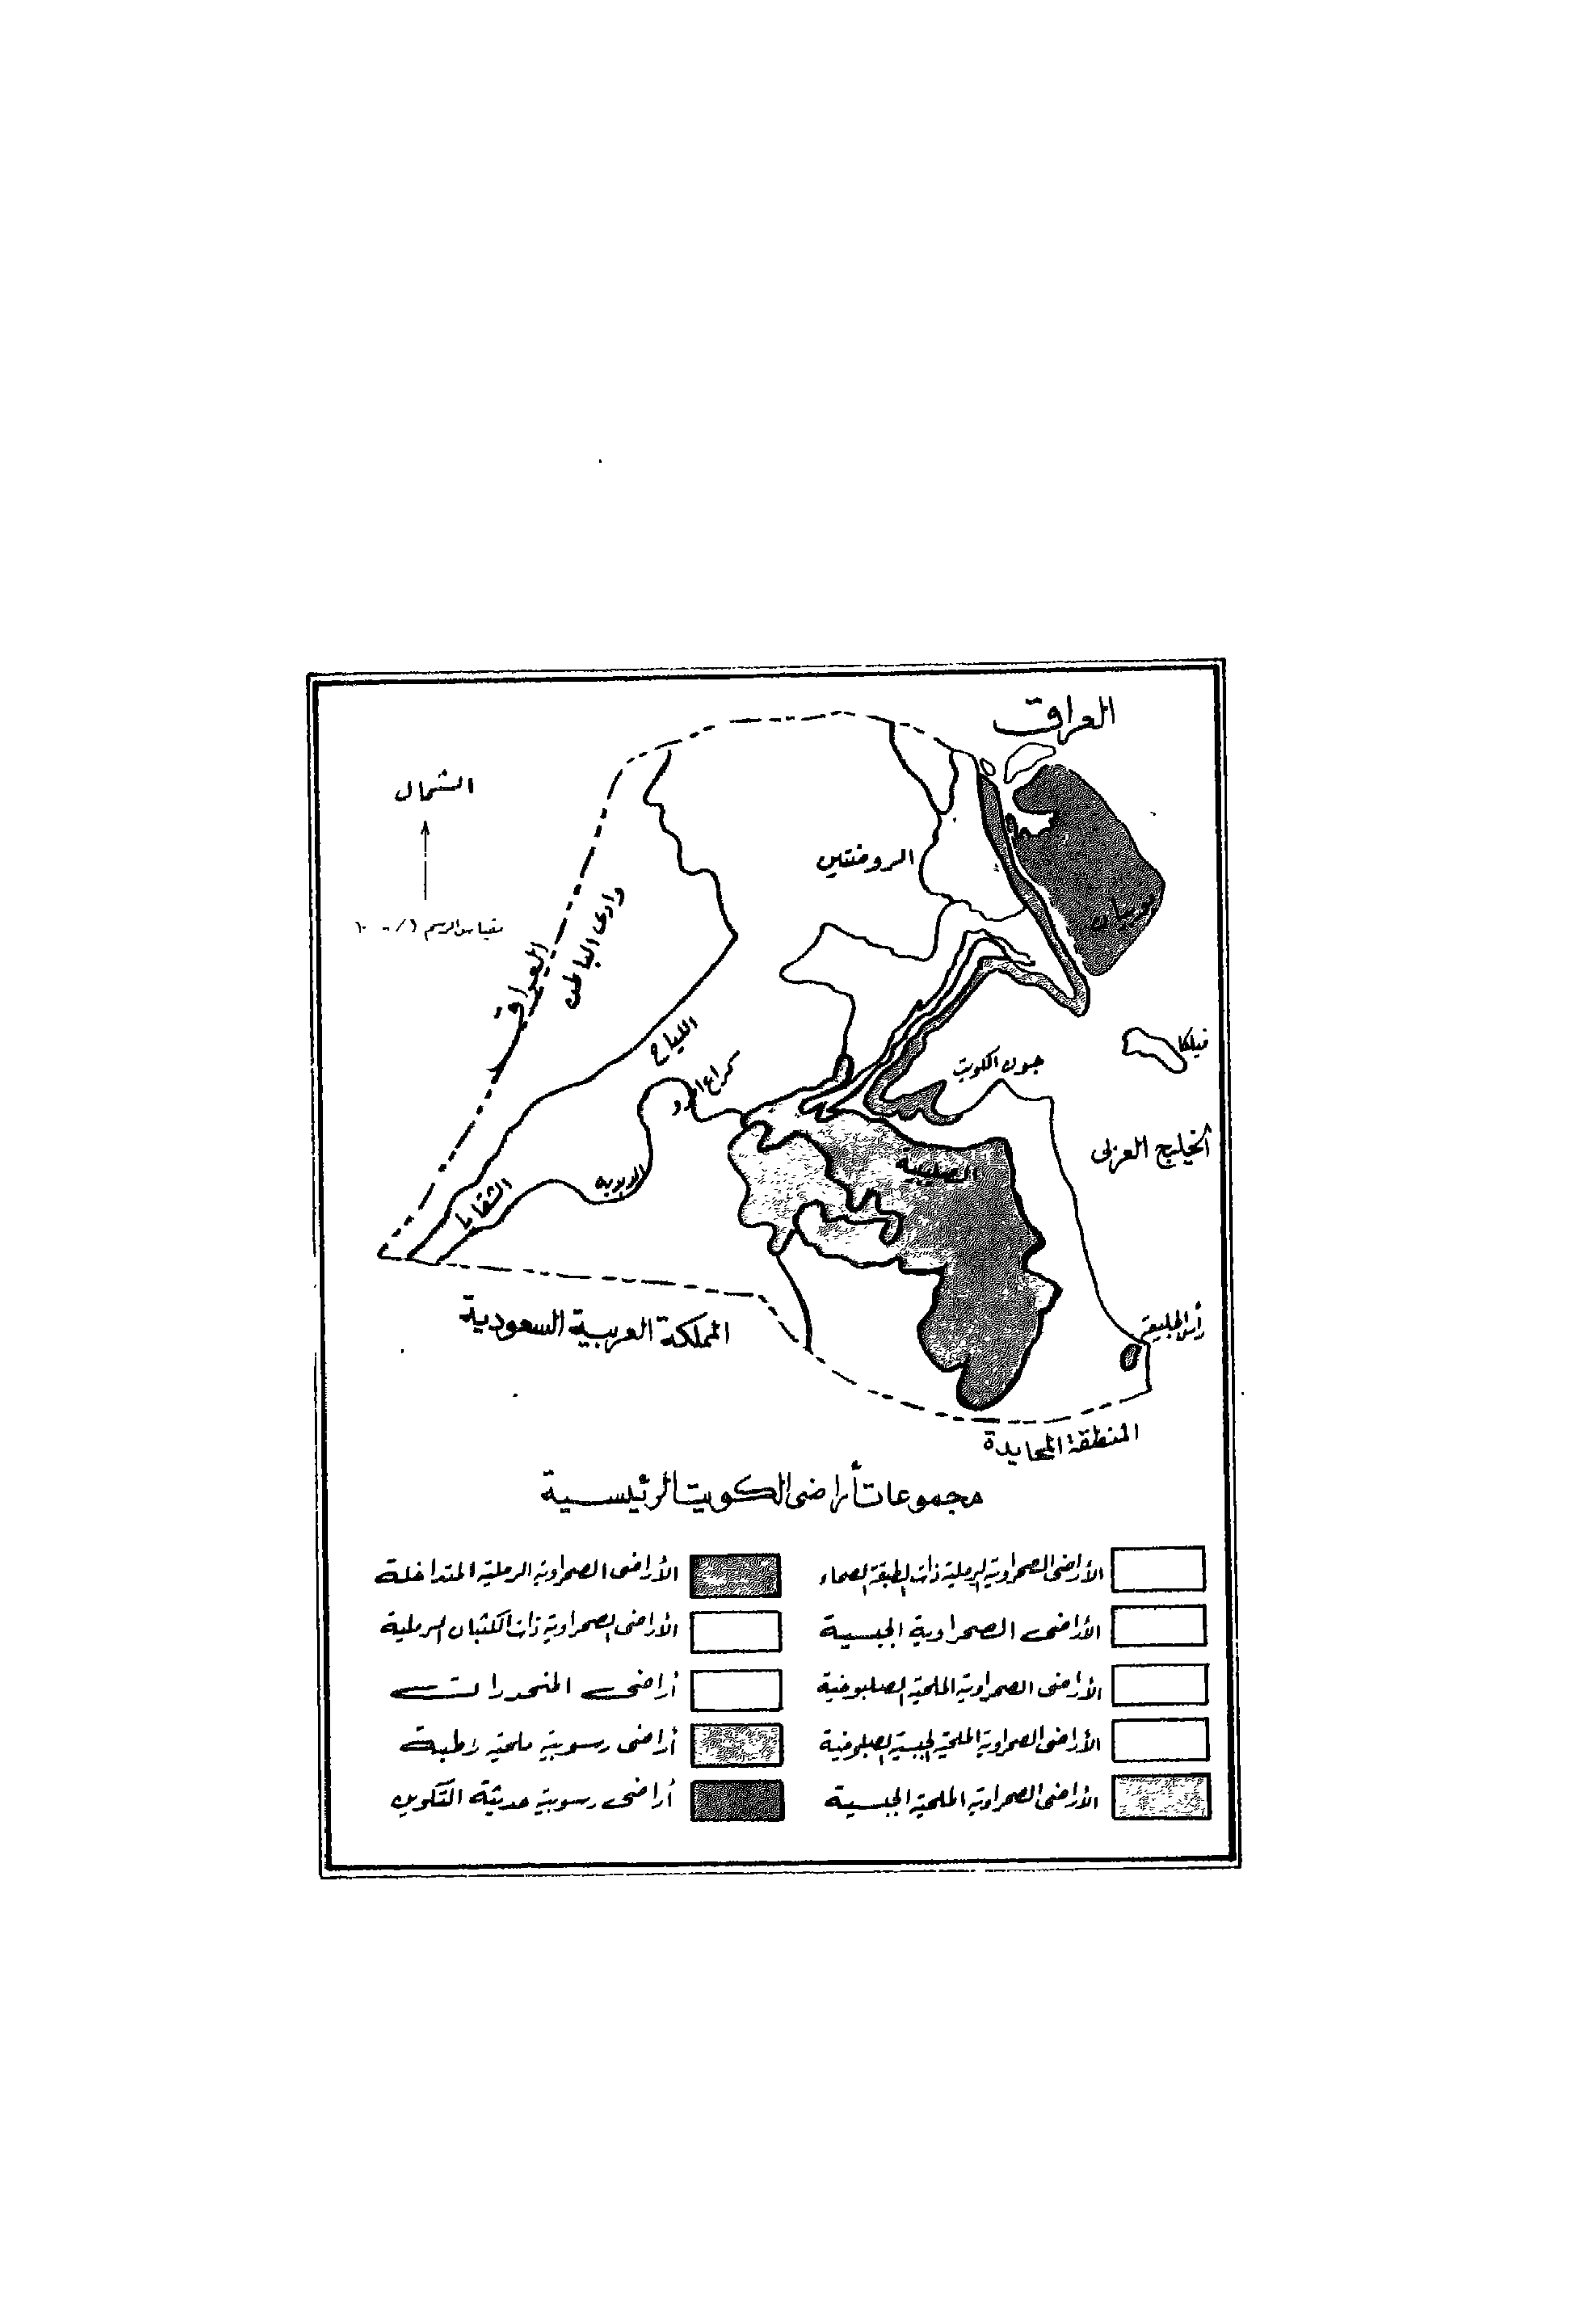 العراق
الشمال
الروضتين
بوبيان
مقياس الرسم
وادى الباطن
العراق
اللياح
كراع
فيلكا
جون الكويت
الخليج العربى
الصليبية
الدبدبه
الشقايا
رأس الجليعة
المملكة العربية السعودية
المنطقة المحايدة
مجموعات أراضى الكويت الرئيسية
الأراضى الصحراوية الرملية ذات الطبقة الصماء
الأراضى الصحراوية الجبسية
الأراضى الصحراوية الملحية الصلبوخية
الأراضى الصحراوية الملحية الجبسية الصلبوخية
الأراضى الصحراوية الملحية الجبسية
الأراضى الصحراوية الرملية المتداخلة
الأراضى الصحراوية ذات الكثبان الرملية
أراضى المنحدرات
أراضى رسوبية ملحية رطبة
أراضى رسوبية حديثة التكوين